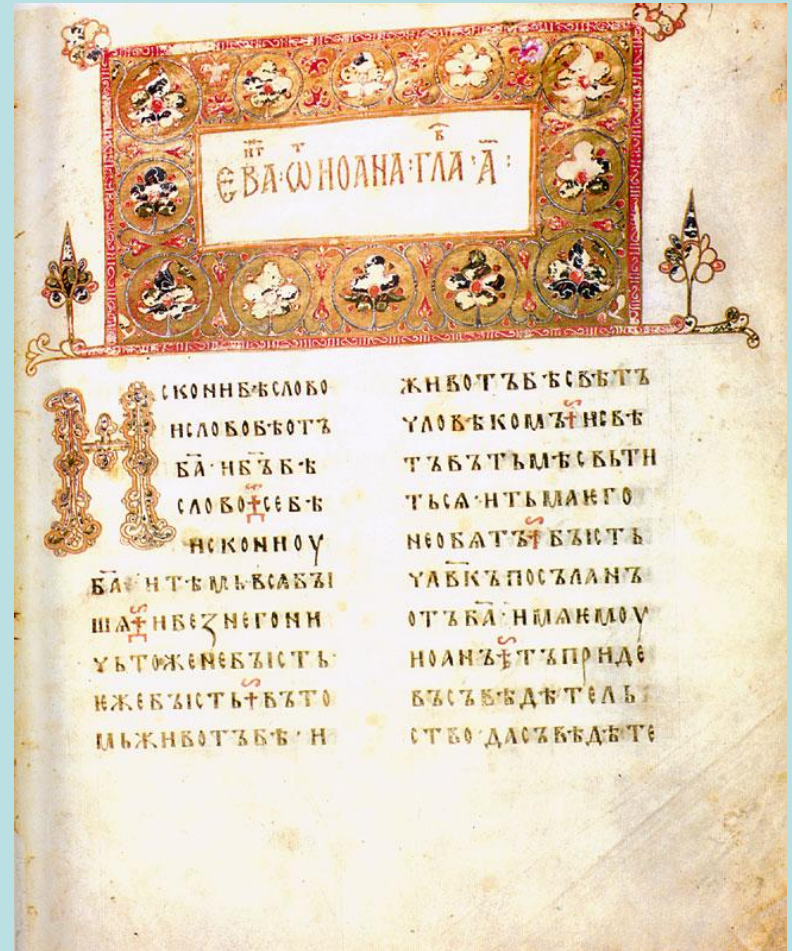 ЕВАⷩ҇ⷢ҇·Ѿⷮ҇ИОАНА·ГЛАⷡ҇·А҃:
ИСКОНИБѢСЛОВО
ИСЛОВОБѢОТЪ
БА҃·ИБ҃ЪБѢ
СЛОВО☩СЕБѢ
ИСКОНИОУ
БА҃·ИТѢМЬВСꙖБЪІ
ШѦ☩ИБЕЗНЕГОНИ
ЧЬТОЖЕНЕБЪІСТЬ·
ѤЖЕБЪІСТЬ☩ВЪТО
МЬЖИВОТЪБѢ·И
ЖИВОТЪБѢСВѢТЪ
ЧЛОВѢКОМЪ☩ИСВѢ
ТЪВЪТЬМѢСВЬТИ
ТЬСѦ·ИТЬМАѤГО
НЕОБѦТЪ☩БЪІСТЬ
ЧЛ҃ВКЪПОСЪЛАНЪ
ОТЪБА҃·ИМѦѤМОУ
ИОАНЪ☩ТЪПРИДЕ
ВЪСЪВѢДѢТЕЛЬ
СТВО·ДАСЪВѢДѢТЕ